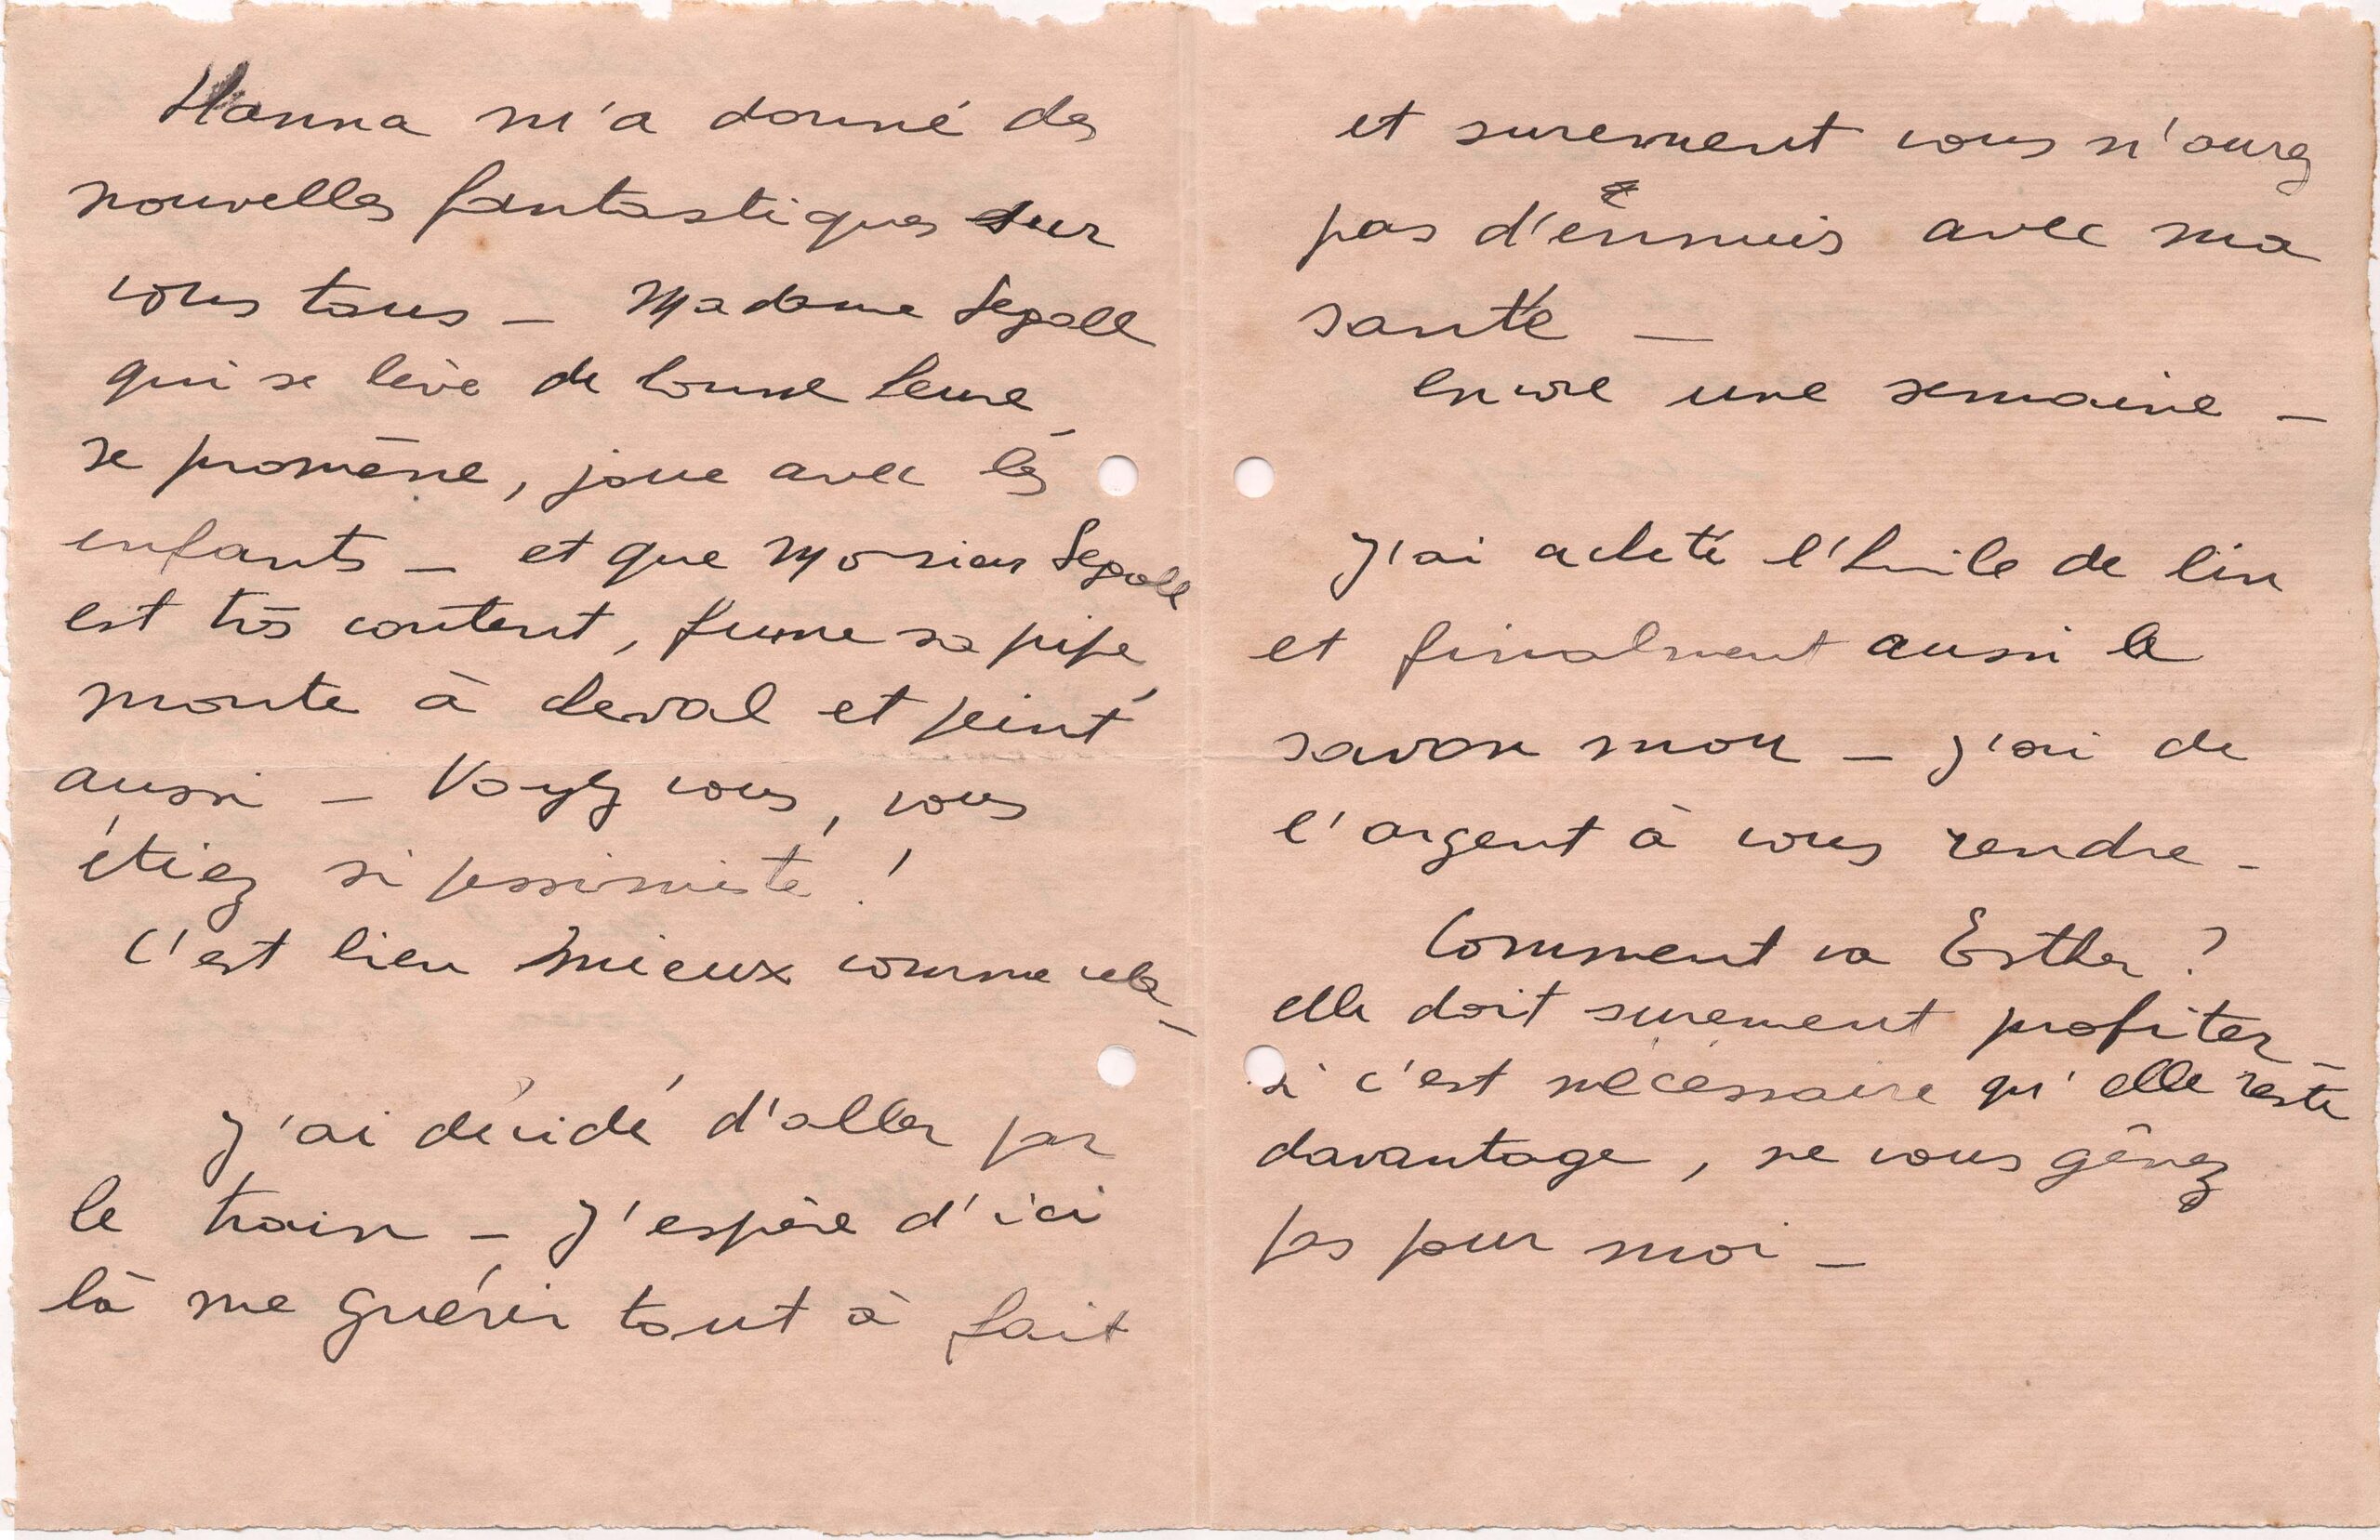 Hanna m'a donné des
nouvelles fantastiques sur
vous tous – Madame Segall
qui se lève de bonne heure,
se promène, joue avec les
enfants – et que Mosieur Segall
est très content, fume sa pipe,
monte à cheval et peint
aussi – Voyez vous, vous
étiez si pessimiste !
C'est bien mieux comme cela –
J'ai décidé d'aller par
le train – J'espère d'ici
là me guérir tout à fait
et surement vous n'aurez
pas d'ennuis avec ma
santé –
encore une semaine –
J'ai acheté l'huile de lin
et finalment aussi le
savon mou – J'ai de
l'argent à vous rendre –
Comment va Esther ?
elle doit surement profiter –
si c'est nécessaire qu'elle reste
davantage, ne vous gênez
pas pour moi –